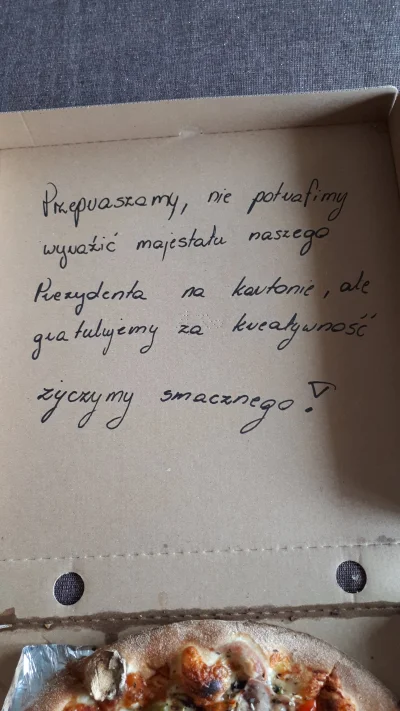 Przepraszamy, nie potrafimy
wyrazić majestatu naszego
Prezydenta na kartonie, ale
gratulujemy za kreatywność
życzymy smacznego!